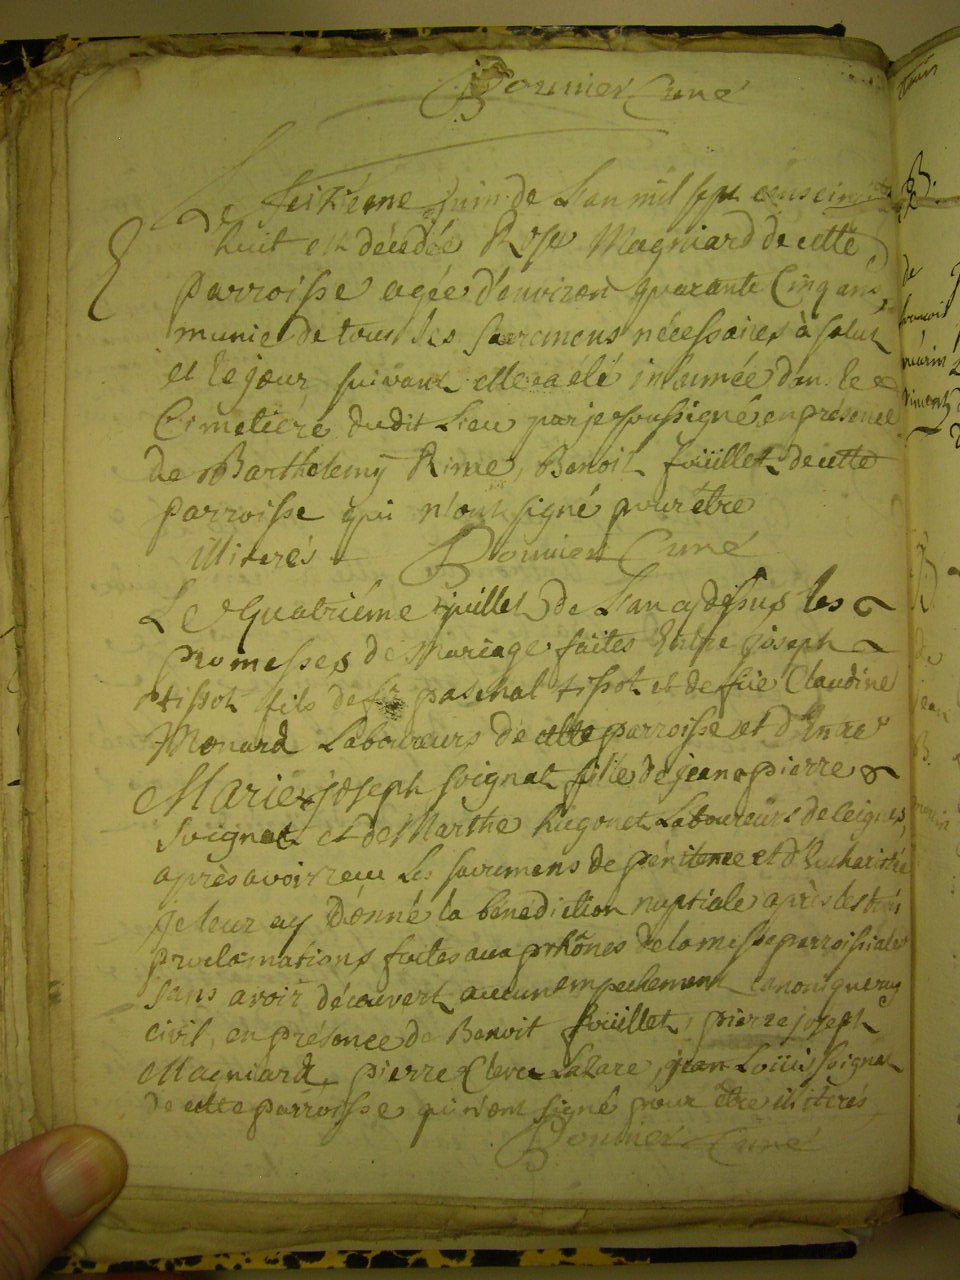 Bounier Curé
Le seizième juin de l'an mil sept cens cinq
huit est décédée Rose Magniard de cette
parroisse agée d'environ quarante Cinq ans,
munie de tous les sacremens nécessaires à salut
et le jour suivant elle a été inhumée dans le
Cimetière dudit Lieu par je soussigné en présence
de Barthelemy Rime, Benoit füillet de cette
parroisse qui n'ont signé pour être
illiterés Bounier Curé
Le Quatriéme juillet de l'an cy dessus les
promesses de Mariage faites Entre joseph
tissot fils de pascal tissot et de füe Claudine
Monard Laboureurs de cette parroisse et d'Entre
Marie joseph soignat fille de jean pierre
soignat et de Marthe hugonet Laboureurs de leignes,
après avoir receu Les sacremens de pénitence et d'Eucharistie
je leur ay Donné la bénediction nuptiale après les trois
proclamations faites aux prhônes de la messe parroissiale
sans avoir découvert aucun empechement canonique ny
civil, en présence de Benoit füillet, pierre joseph
Magniard, pierre Claude Lazare, jean Loüis soignat
de cette parroisse qui n'ont signé pour être illiterés
Bounier Curé